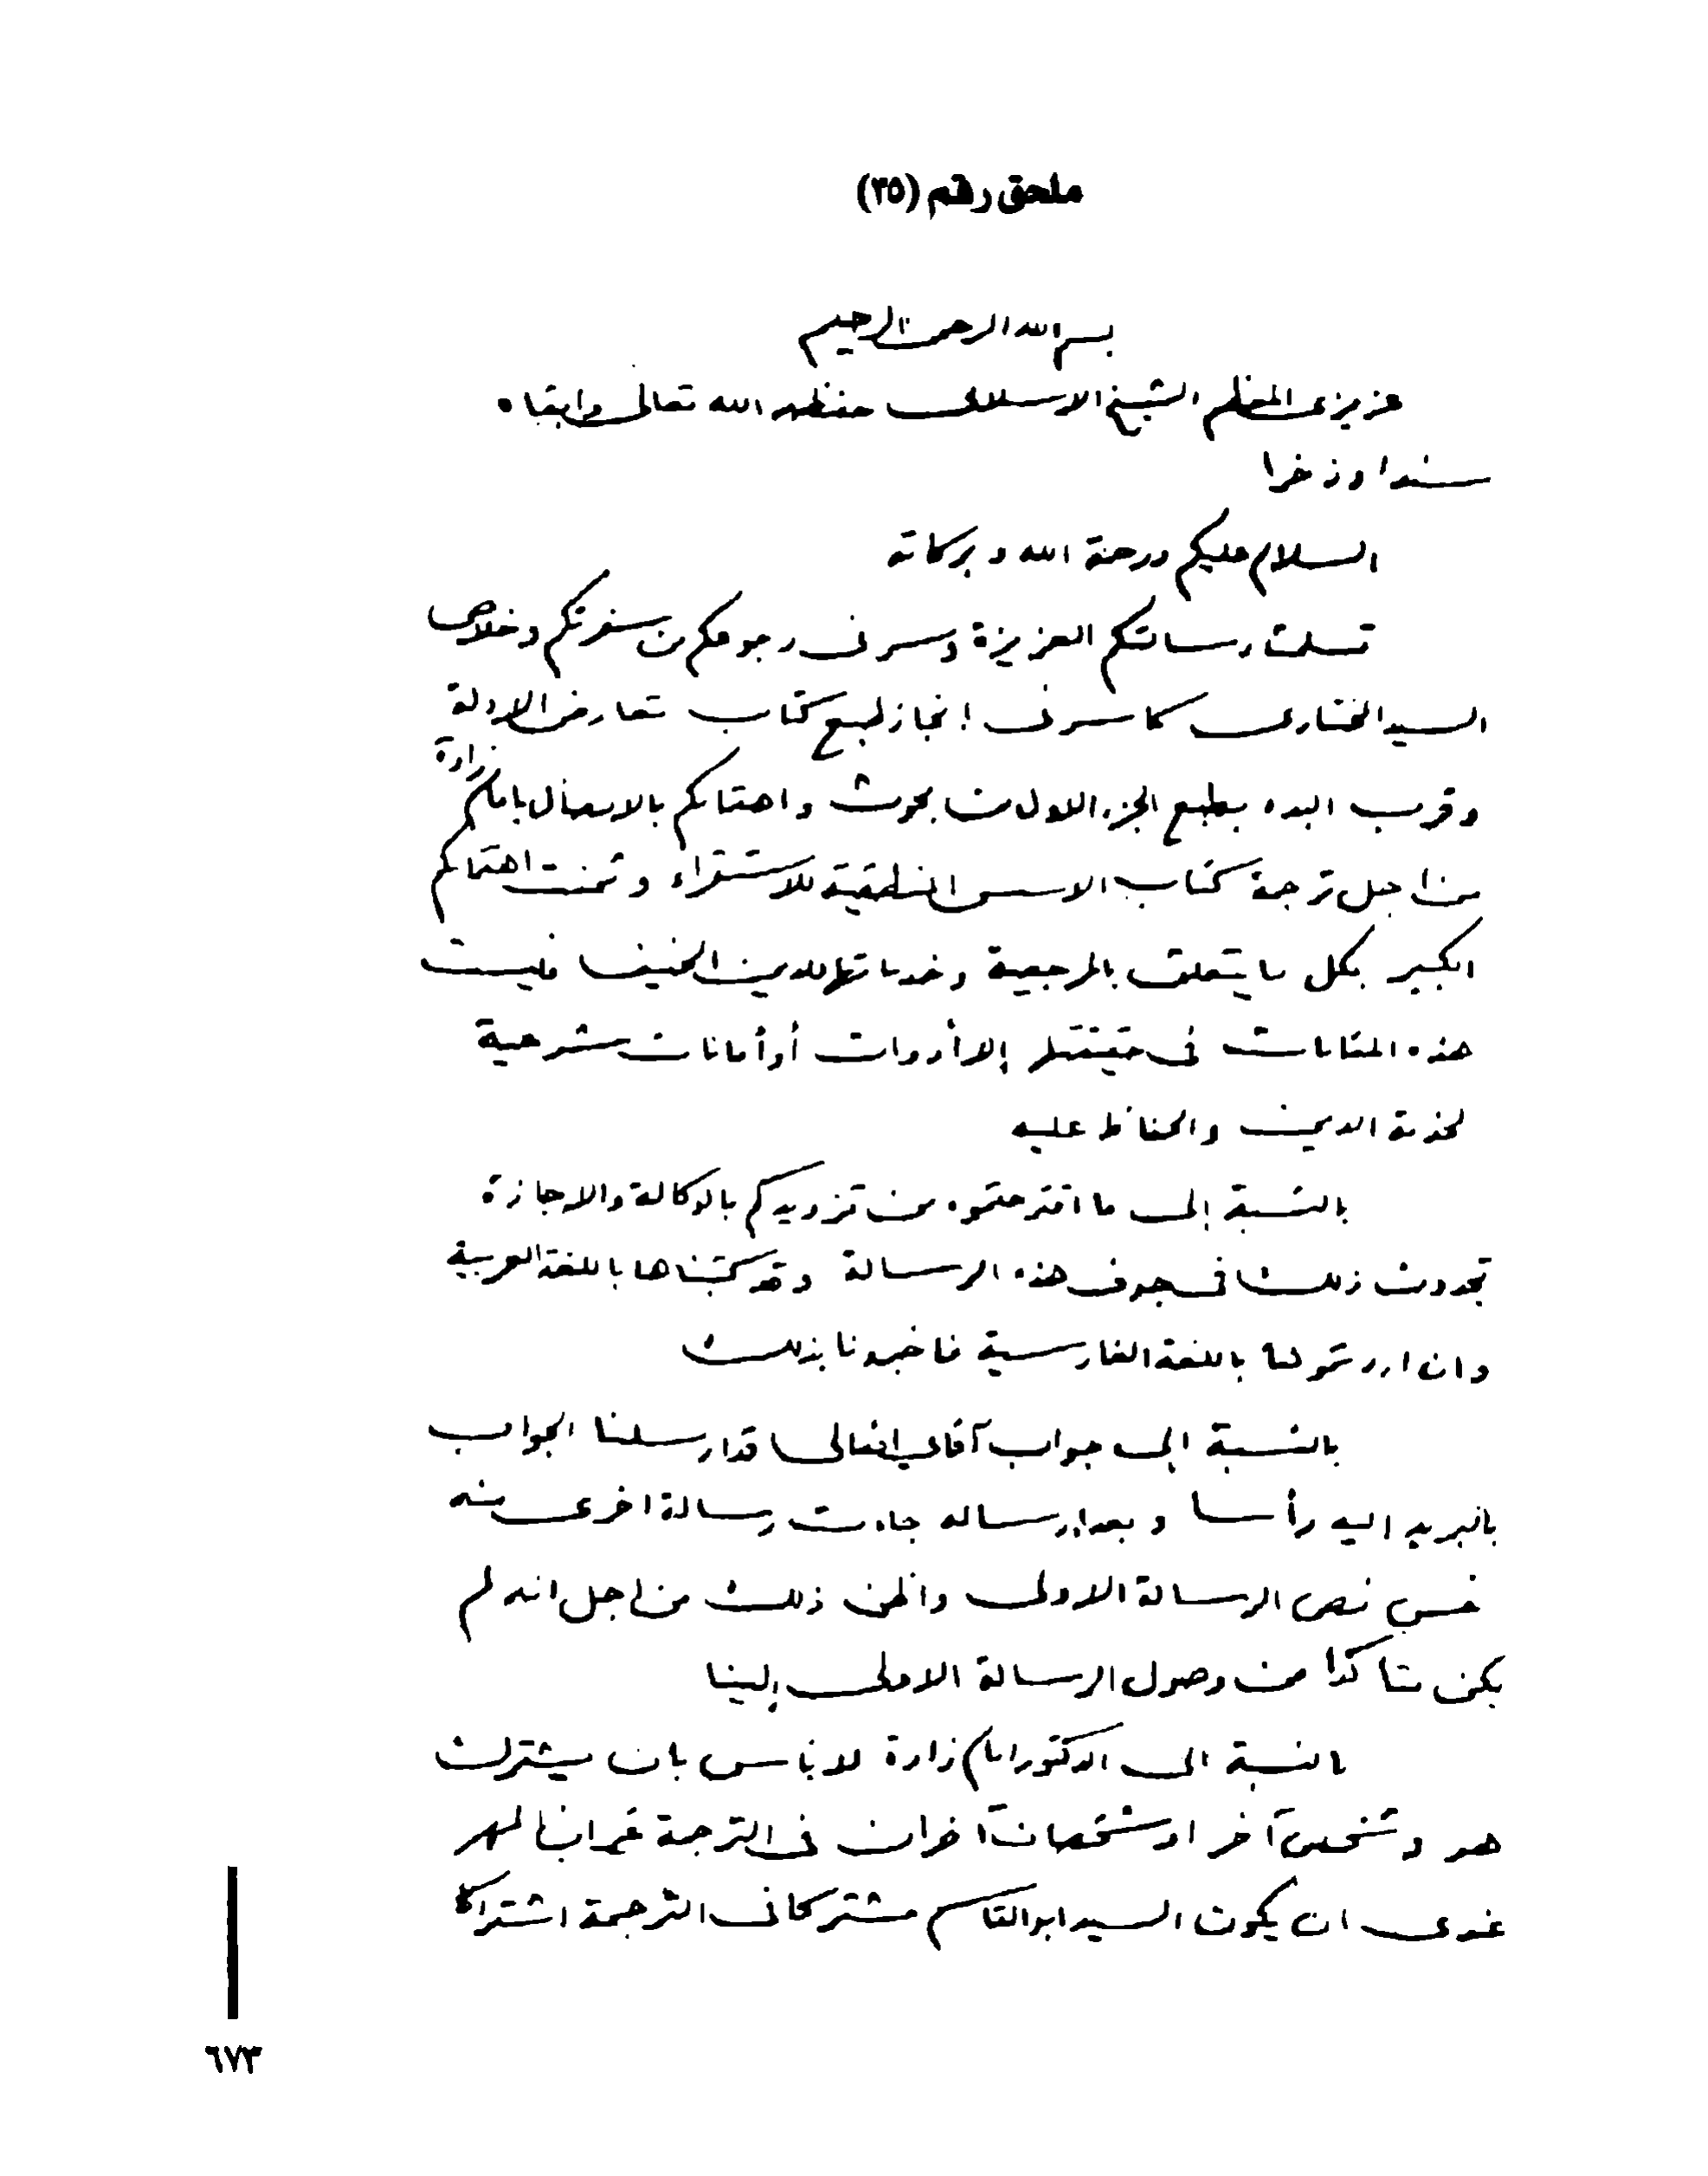 ملحق رقم (٣٥)
بسم الله الرحمن الرحيم
عزيزي المعظم الشيخ الاسلامي حفظه الله تعالى وابقاه
سندا وذخرا
السلام عليكم ورحمة الله وبركاته
تسلمت رسالتكم العزيزة وسرني رجوعكم من سفرتكم وخلاص
السيد المختاري كما سرني إنجاز طبع كتاب تعارض الادلة
وقرب البدء بطبع الجزء الاول من بحوث واهتمامكم بالاتصال بامام زادة
من اجل ترجمة كتاب الاسس المنطقية للاستقراء وثمنت اهتمامكم
الكبير بكل ما يتعلق بالمرجعية وخدماتها للدين الحنيف فليست
هذه المقامات في حقيقتها إلا أدوات أو أمانات شرعية
لخدمة الدين والحفاظ عليه
بالنسبة إلى ما اقترحتموه من تزويدكم بالوكالة والاجازة
تجدون ذلك في جوف هذه الرسالة وقد كتبناها باللغة العربية
وان اردتموها باللغة الفارسية فاخبرونا بذلك
بالنسبة إلى جواب آقاي قد ارسلنا الجواب
بالبريد اليه رأسا وبعد إرساله جاءت رسالة اخرى منه
نفس نص الرسالة الاولى واظن ذلك من اجل انه لم
يكن متأكدا من وصول الرسالة الاولى إلينا
بالنسبة الى الدكتور امام زادة لا بأس بان يشترك
هو وشخص آخر او شخصان آخران في الترجمة غير ان المهم
عندي ان يكون السيد ابو القاسم مشتركا في الترجمة اشتراكا
٦٧٣